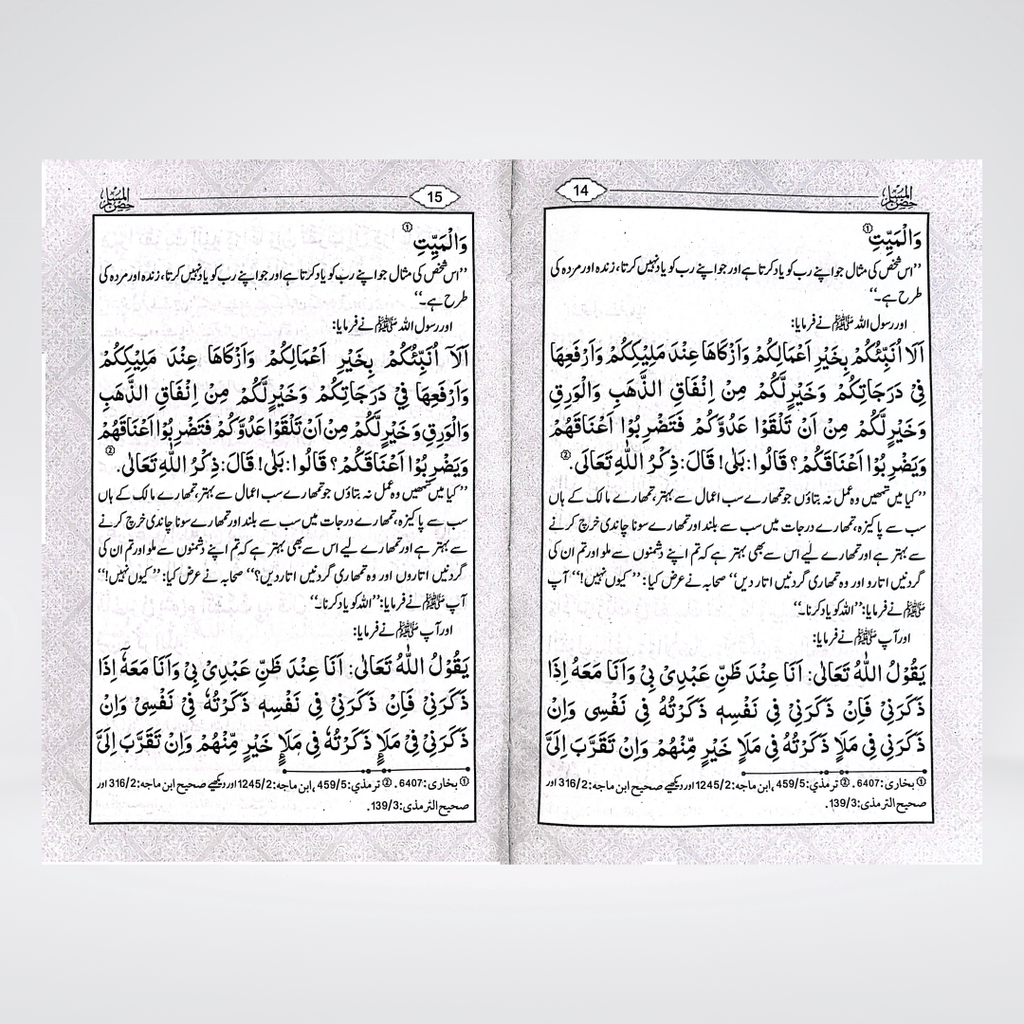 14
حصن المسلم
وَالْمَيِّتِ①
’’اس شخص کی مثال جو اپنے رب کو یاد کرتا ہے اور جو اپنے رب کو یاد نہیں کرتا، زندہ اور مردہ کی
طرح ہے۔‘‘
اور رسول اللہ ﷺ نے فرمایا:
اَلَا اُنَبِّئُكُمْ بِخَيْرِ اَعْمَالِكُمْ وَاَزْكَاهَا عِنْدَ مَلِيْكِكُمْ وَاَرْفَعِهَا
فِيْ دَرَجَاتِكُمْ وَخَيْرٍ لَّكُمْ مِنْ اِنْفَاقِ الذَّهَبِ وَالْوَرِقِ
وَخَيْرٍ لَّكُمْ مِنْ اَنْ تَلْقَوْا عَدُوَّكُمْ فَتَضْرِبُوْا اَعْنَاقَهُمْ
وَيَضْرِبُوْا اَعْنَاقَكُمْ؟ قَالُوا: بَلٰى! قَالَ: ذِكْرُ اللّٰهِ تَعَالَى.②
’’کیا میں تمھیں وہ عمل نہ بتاؤں جو تمھارے سب اعمال سے بہتر، تمھارے مالک کے ہاں
سب سے پاکیزہ، تمھارے درجات میں سب سے بلند اور تمھارے سونا چاندی خرچ کرنے
سے بہتر ہے اور تمھارے لیے اس سے بھی بہتر ہے کہ تم اپنے دشمنوں سے ملو اور تم ان کی
گردنیں اتارو اور وہ تمھاری گردنیں اتار دیں‘‘ صحابہ نے عرض کیا: ’’کیوں نہیں!‘‘ آپ
ﷺ نے فرمایا: ’’اللہ کو یاد کرنا۔‘‘
اور آپ ﷺ نے فرمایا:
يَقُوْلُ اللّٰهُ تَعَالٰى: اَنَا عِنْدَ ظَنِّ عَبْدِىْ بِيْ وَاَنَا مَعَهُ اِذَا
ذَكَرَنِيْ فَاِنْ ذَكَرَنِيْ فِي نَفْسِهٖ ذَكَرْتُهُ فِي نَفْسِى وَاِنْ
ذَكَرَنِي فِي مَلَاٍ ذَكَرْتُهُ فِي مَلَاٍ خَيْرٍ مِّنْهُمْ وَاِنْ تَقَرَّبَ اِلَىَّ
① بخاری: 6407. ② ترمذي: 459/5، ابن ماجه: 1245/2 اور دیکھیے صحیح ابن ماجه: 316/2 اور
صحیح الترمذی: 139/3.
15
حصن المسلم
وَالْمَيِّتِ①
’’اس شخص کی مثال جو اپنے رب کو یاد کرتا ہے اور جو اپنے رب کو یاد نہیں کرتا، زندہ اور مردہ کی
طرح ہے۔‘‘
اور رسول اللہ ﷺ نے فرمایا:
اَلَآ اُنَبِّئُكُمْ بِخَيْرِ اَعْمَالِكُمْ وَاَزْكَاهَا عِنْدَ مَلِيْكِكُمْ
وَاَرْفَعِهَا فِيْ دَرَجَاتِكُمْ وَخَيْرٍ لَّكُمْ مِنْ اِنْفَاقِ الذَّهَبِ
وَالْوَرِقِ وَخَيْرٍ لَّكُمْ مِنْ اَنْ تَلْقَوْا عَدُوَّكُمْ فَتَضْرِبُوْا اَعْنَاقَهُمْ
وَيَضْرِبُوْا اَعْنَاقَكُمْ؟ قَالُوا: بَلٰى! قَالَ: ذِكْرُ اللّٰهِ تَعَالٰى.②
’’کیا میں تمھیں وہ عمل نہ بتاؤں جو تمھارے سب اعمال سے بہتر، تمھارے مالک کے ہاں
سب سے پاکیزہ، تمھارے درجات میں سب سے بلند اور تمھارے سونا چاندی خرچ کرنے
سے بہتر ہے اور تمھارے لیے اس سے بھی بہتر ہے کہ تم اپنے دشمنوں سے ملو اور تم ان کی
گردنیں اتاروں اور وہ تمھاری گردنیں اتار دیں؟‘‘ صحابہ نے عرض کیا: ’’کیوں نہیں!‘‘
آپ ﷺ نے فرمایا: ’’اللہ کو یاد کرنا۔‘‘
اور آپ ﷺ نے فرمایا:
يَقُوْلُ اللّٰهُ تَعَالٰى: اَنَا عِنْدَ ظَنِّ عَبْدِىْ بِيْ وَاَنَا مَعَهٗٓ اِذَا
ذَكَرَنِيْ فَاِنْ ذَكَرَنِيْ فِي نَفْسِهٖ ذَكَرْتُهٗ فِيْ نَفْسِيْ وَاِنْ
ذَكَرَنِيْ فِيْ مَلَإٍ ذَكَرْتُهٗ فِيْ مَلَإٍ خَيْرٍ مِّنْهُمْ وَاِنْ تَقَرَّبَ اِلَيَّ
① بخاری: 6407. ② ترمذي: 459/5، ابن ماجه: 1245/2 اور دیکھیے صحیح ابن ماجه: 316/2 اور
صحیح الترمذی: 139/3.